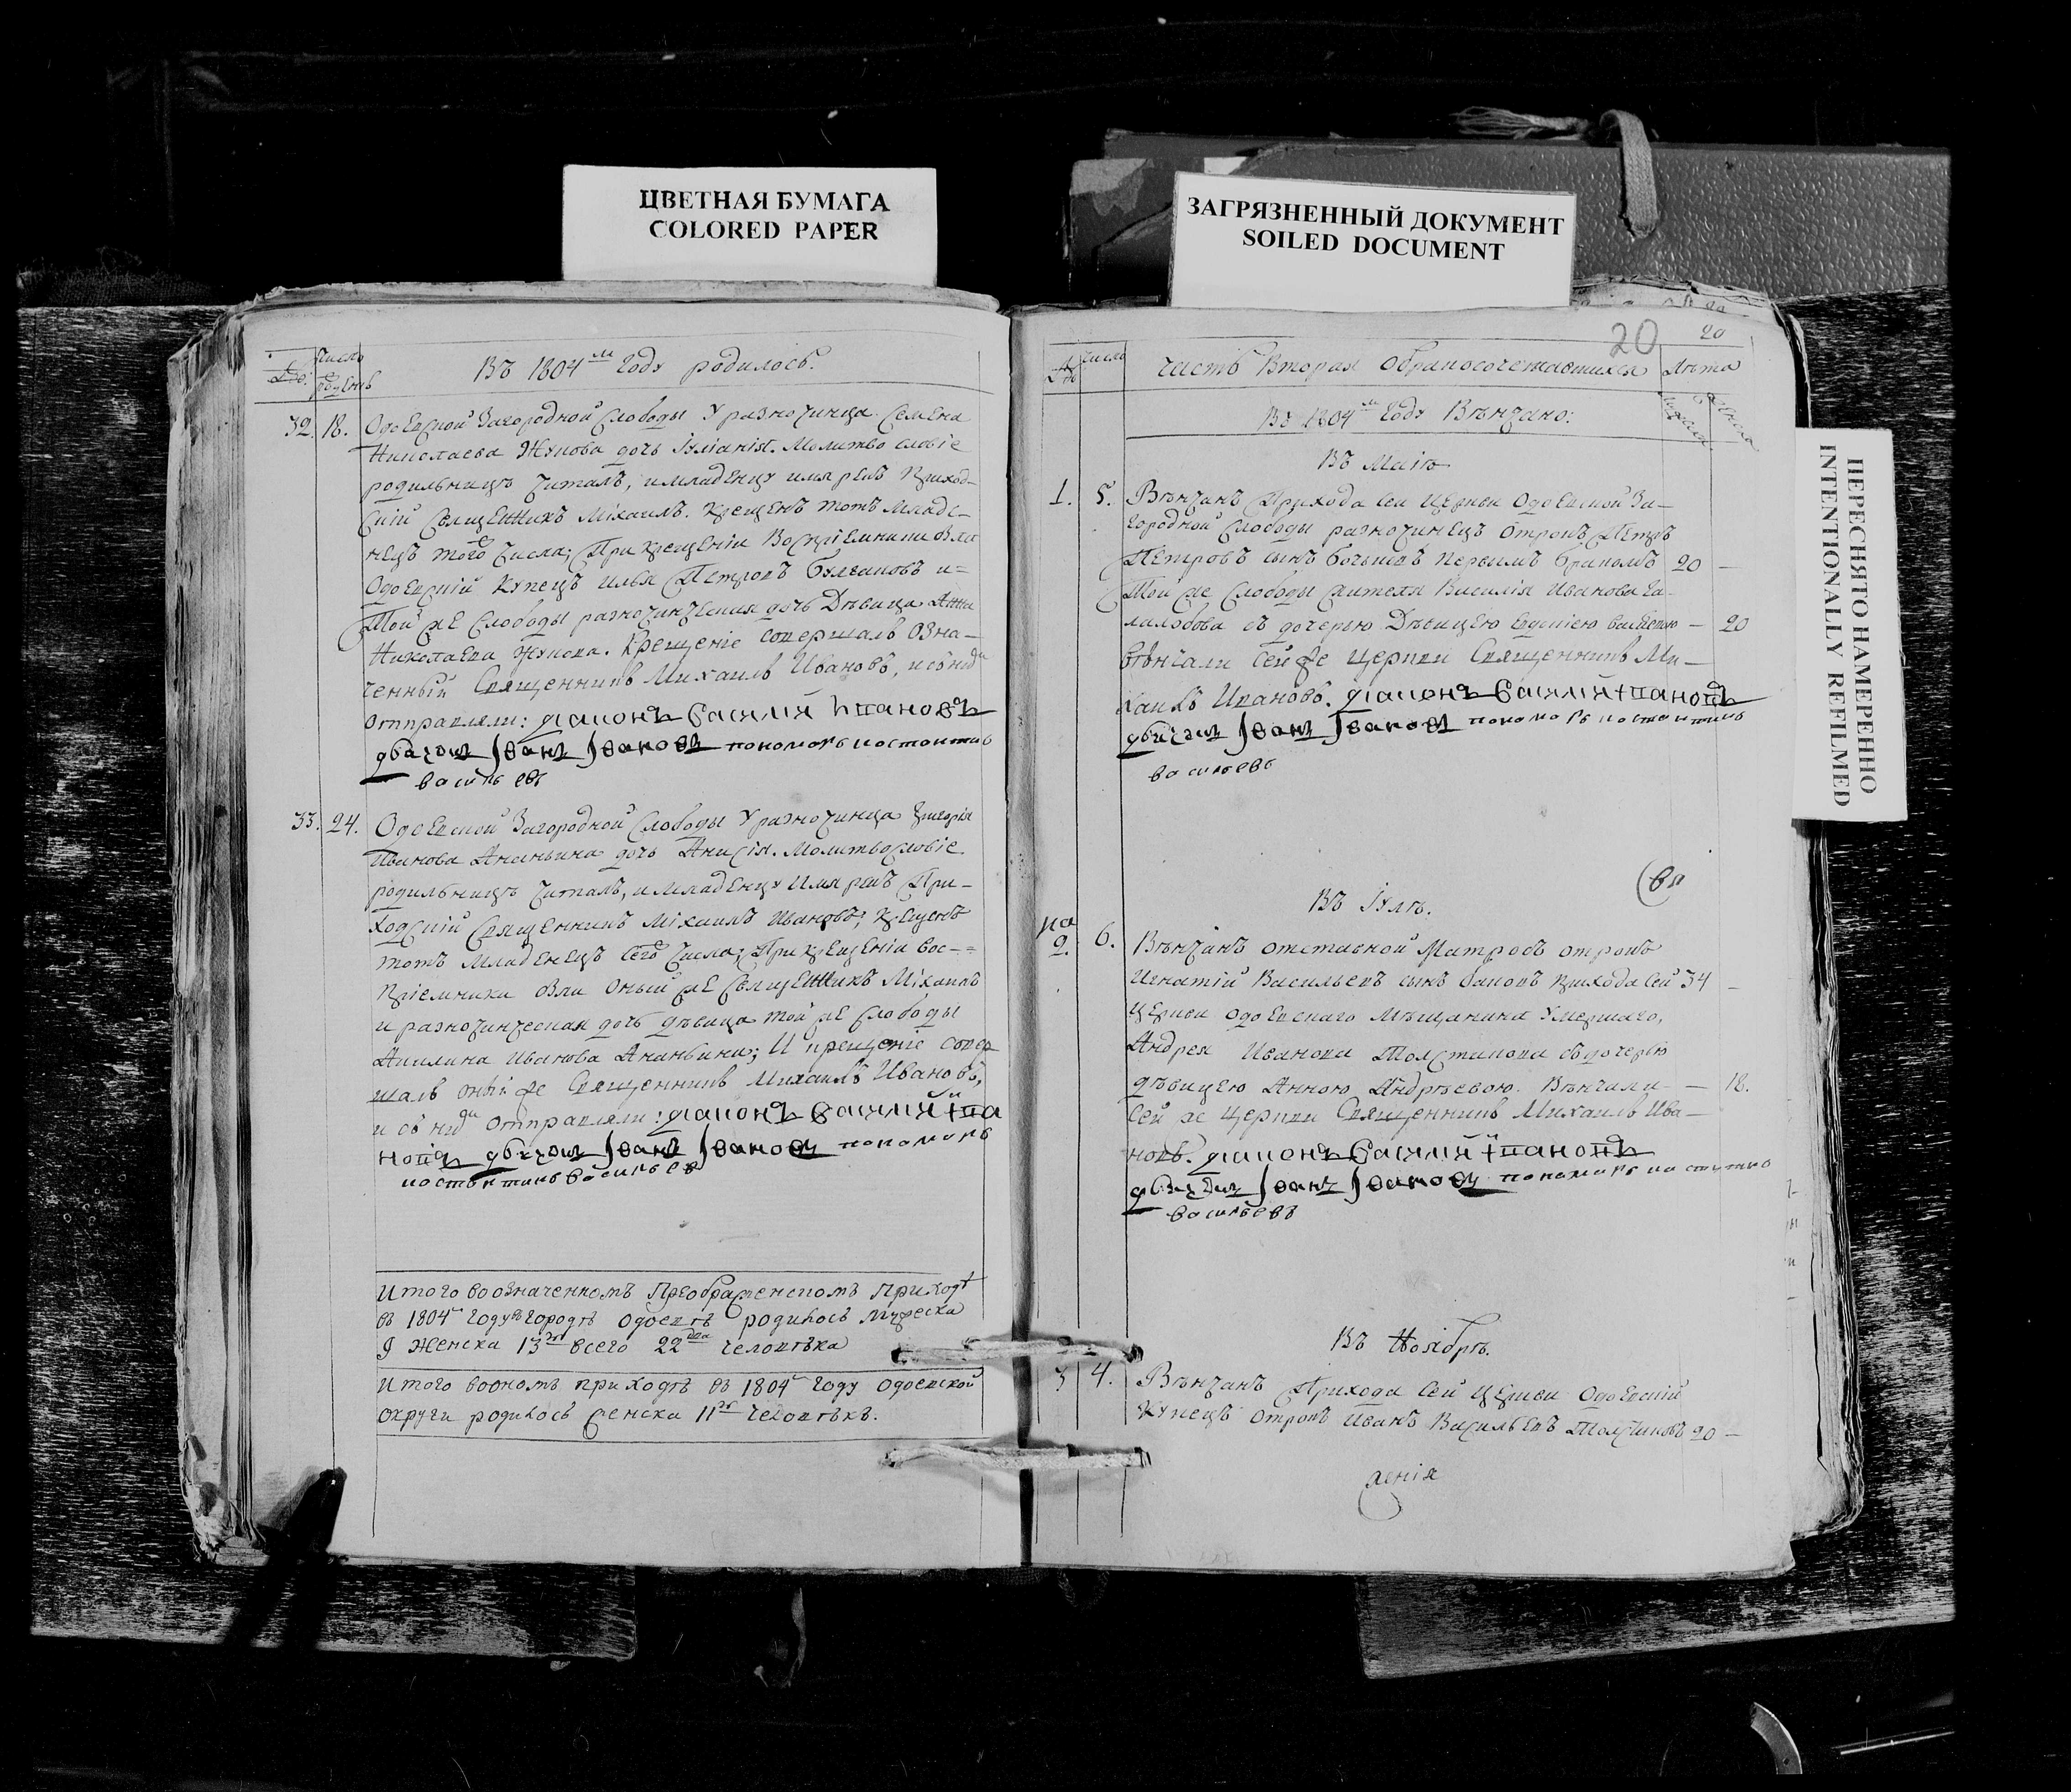 ЦВЕТНАЯ БУМАГА
COLORED PAPER
ЗАГРЯЗНЕННЫЙ ДОКУМЕНТ
SOILED DOCUMENT
ПЕРЕСНЯТО НАМЕРЕННО
INTENTIONALLY REFILMED
число
Въ 1804м году родилось.
32. 18. Одоевской Загородной Слободы у разночинца Семена
Николаева Жукова дочь Іуліанія. Молитвословіе
родильницъ читалъ, и младенцу имя рекъ Приход-
скій Священникъ Міхаилъ. Крещенъ тотъ младе-
нецъ того числа; При крещеніи Воспріемники были
Одоевскій Купецъ Илья Петровъ Булгаковъ и-
Той же Слободы разночинческая дочь Дѣвица Анна
Николаева Жукова. Крещеніе совершалъ Озна-
ченный Священникъ Михаилъ Ивановъ, и обниди
отправляли: діаконъ Василій Ивановъ
дьячокъ Іванъ Івановъ пономарь костентинъ
васильевъ
33. 24. Одоевской Загородной Слободы у разночинца Григорія
Иванова Ананьина дочь Анисія. Молитвословіе
родильницъ читалъ, и младенцу имя рекъ При-
ходскій Священникъ Міхаилъ Ивановъ; Крещенъ
тотъ младенецъ сего числа; При крещеніи вос-
пріемники были оный же Священникъ Міхаилъ
и разночинческая дочь дѣвица той же Слободы
Акилина Иванова Ананьина; И крещеніе совер
шалъ оный же Священникъ Михаилъ Ивановъ,
отправляли: діаконъ Василій Iва
новъ дьячокъ Іванъ Івановъ пономарь
костентинъ васильевъ
Итого воозначенномъ Преображенскомъ Приходѣ
въ 1804м году въ городѣ Одоевѣ родилось мужеска
9 Женска 13ть всего 22два человѣка
Итого воономъ приходѣ въ 1804м году Одоевской
округи родилось женска 11ть человѣкъ.
20
20
число
Часть Вторая Обракосочетавшихся
Лѣта
Въ 1804м Году Вѣнчано:
Въ Маіѣ
1. 5. Вѣнчанъ Прихода сей Церкви Одоевской За-
городной Слободы разночинецъ отрокъ Петръ
Петровъ сынъ первымъ бракомъ 20 —
Той же Слободы жителя Василія Иванова
съ дочерью Дѣвицею — 20
вѣнчали Сей же Церкви Священникъ Ми-
хаилъ Ивановъ. діаконъ Василій Iвановъ
дьячокъ Іванъ Івановъ пономарь костентинъ
васильевъ
Въ Іулѣ.
2. 6. Вѣнчанъ отставной Матросъ отрокъ
Игнатій Васильевъ сынъ прихода сей 34 —
Церкви Одоевскаго Мѣщанина Умершаго,
Андрея Иванова Толстикова съ дочерью
дѣвицею Анною Андрѣевою. Вѣнчали — 18.
Сей же Церкви Священникъ Михаилъ Ива-
новъ. діаконъ Василій Iвановъ
дьячокъ Іванъ Івановъ пономарь костентинъ
васильевъ
Въ Ноябрѣ.
3 4. Вѣнчанъ Прихода сей Церкви Одоевскій
Купецъ отрокъ Иванъ Васильевъ Толстиковъ 20 —